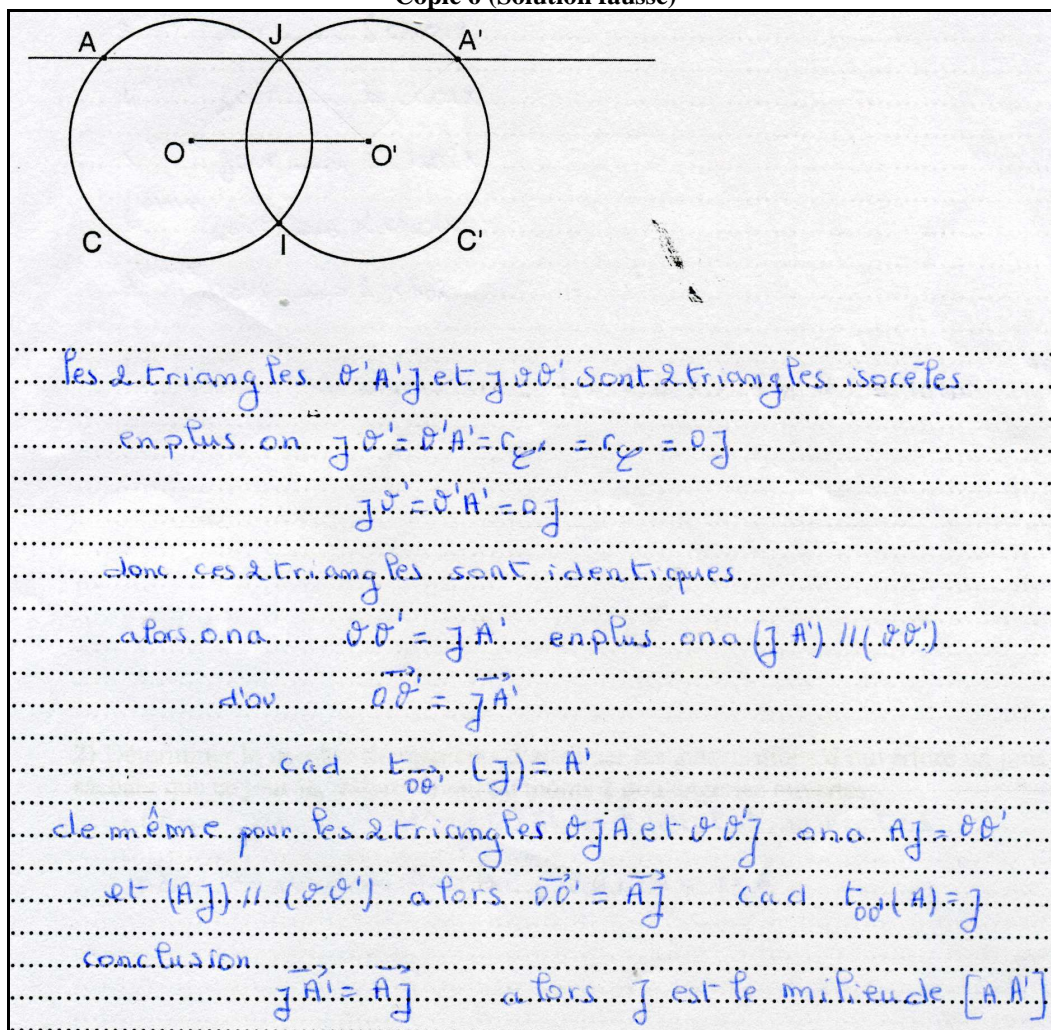 Copie 6 (Solution fausse)
A J A'
O O'
C I C'
les 2 triangles O'A'J et JOO' sont 2 triangles isocèles
en plus on JO' = O'A' = r_𝒞' = r_𝒞 = OJ
JO' = O'A' = OJ
donc ces 2 triangles sont identiques
alors on a OO' = JA' en plus on a (JA') // (OO')
d'où OO'⃗ = JA'⃗
càd t_OO'⃗ (J) = A'
de même pour les 2 triangles OJA et OO'J on a AJ = OO'
et (AJ) // (OO') alors OO'⃗ = AJ⃗ càd t_OO'⃗ (A) = J
conclussion
JA'⃗ = AJ⃗ alors J est le milieu de [AA']